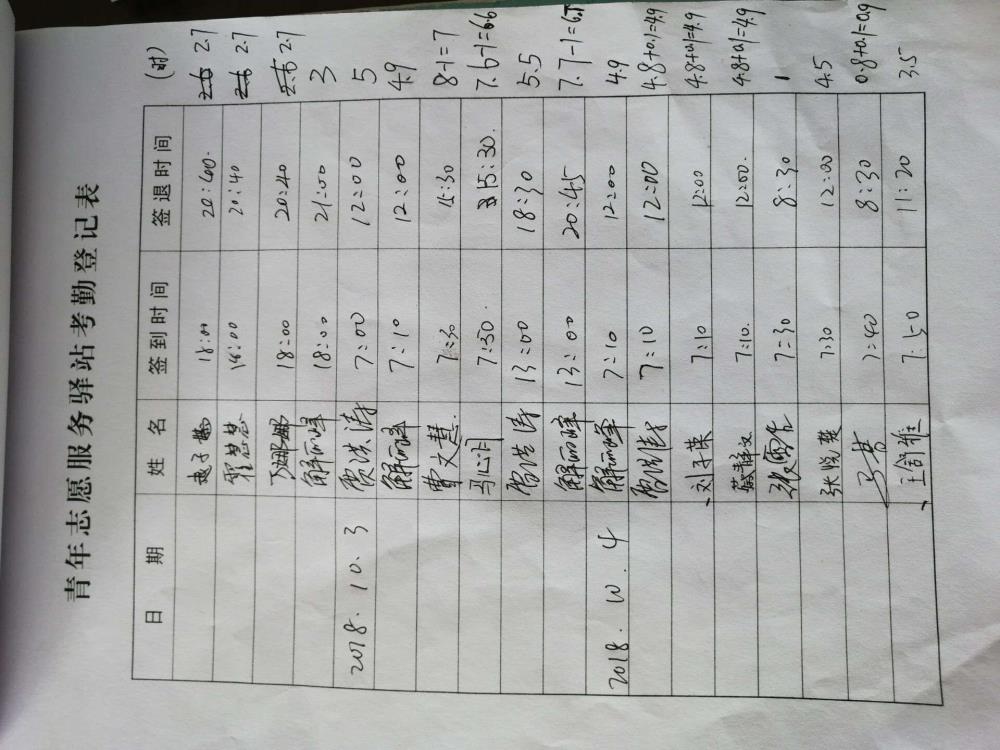 青年志愿服务驿站考勤登记表
日 期 姓 名 签到时间 签退时间 (时)
18:00 20:40 2.7
18:00 20:40 2.7
丁娜娜 18:00 20:40 2.7
解丽峰 18:00 21:00 3
2018.10.3 贾洪涛 7:00 12:00 5
解丽峰 7:10 12:00 4.9
曹文慧 7:30 15:30 8-1=7
马心 7:50 15:30 7.6-1=6.6
贾洪涛 13:00 18:30 5.5
解丽峰 13:00 20:45 7.7-1=6.7
2018.10.4 解丽峰 7:10 12:00 4.9
贾洪涛 7:10 12:00 4.8+0.1=4.9
刘子荣 7:10 12:00 4.8+0.1=4.9
静文 7:10 12:00 4.8+0.1=4.9
张 7:30 8:30 1
张晓楚 7:30 12:00 4.5
7:40 8:30 0.8+0.1=0.9
王舒雅 7:50 11:20 3.5